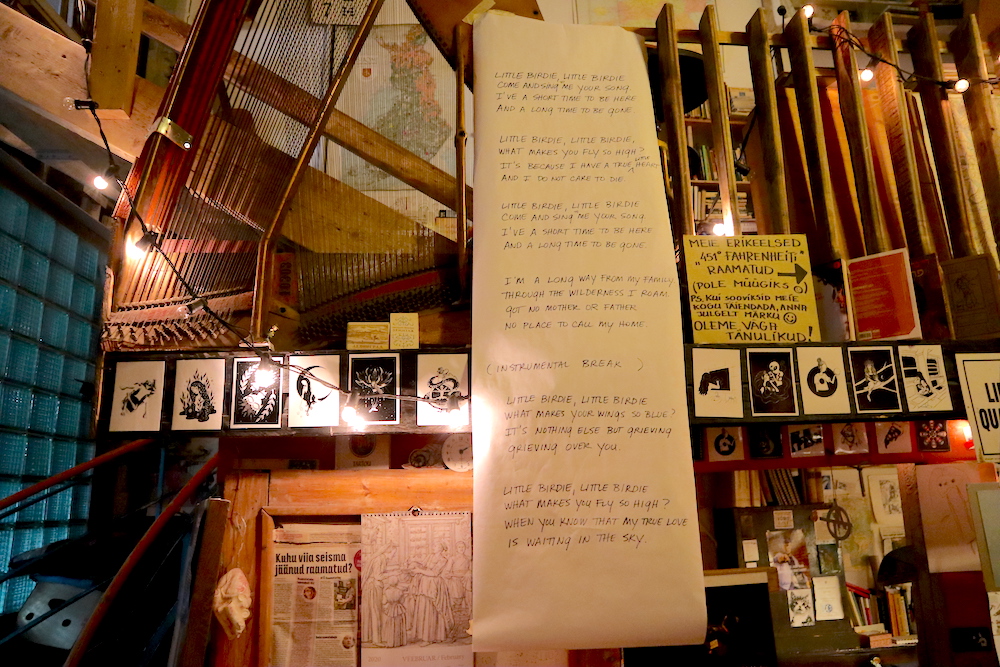 LITTLE BIRDIE, LITTLE BIRDIE
COME AND SING ME YOUR SONG.
I'VE A SHORT TIME TO BE HERE
AND A LONG TIME TO BE GONE.
LITTLE BIRDIE, LITTLE BIRDIE,
WHAT MAKES YOU FLY SO HIGH?
IT'S BECAUSE I HAVE A TRUE LITTLE HEART
AND I DO NOT CARE TO DIE.
LITTLE BIRDIE, LITTLE BIRDIE
COME AND SING ME YOUR SONG.
I'VE A SHORT TIME TO BE HERE
AND A LONG TIME TO BE GONE.
I'M A LONG WAY FROM MY FAMILY
THROUGH THE WILDERNESS I ROAM.
GOT NO MOTHER OR FATHER
NO PLACE TO CALL MY HOME.
(INSTRUMENTAL BREAK )
LITTLE BIRDIE, LITTLE BIRDIE
WHAT MAKES YOUR WINGS SO BLUE?
IT'S NOTHING ELSE BUT GRIEVING
GRIEVING OVER YOU.
LITTLE BIRDIE, LITTLE BIRDIE
WHAT MAKES YOU FLY SO HIGH?
WHEN YOU KNOW THAT MY TRUE LOVE
IS WAITING IN THE SKY.
MEIE ERIKEELSED
„451° FAHRENHEITI
RAAMATUD →
(POLE MÜÜGIKS)
PS. KUI SOOVIKSID MEIE
KODU TÄIENDADA, ANNA
JULGELT MÄRKU ☺
OLEME VÄGA
TÄNULIKUD!
LI
QU
Kuhu viia seisma
jäänud raamatud?
VEEBRUAR / February